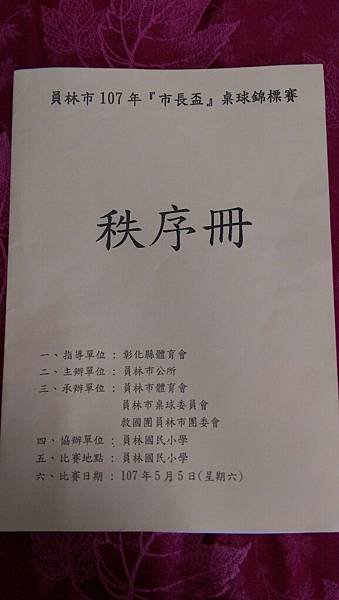 員林市 107 年『市長盃』桌球錦標賽
秩序冊
一、指導單位 : 彰化縣體育會
二、主辦單位 : 員林市公所
三、承辦單位 : 員林市體育會
員林市桌球委員會
救國團員林市團委會
四、協辦單位 : 員林國民小學
五、比賽地點 : 員林國民小學
六、比賽日期 : 107 年 5 月 5 日(星期六)